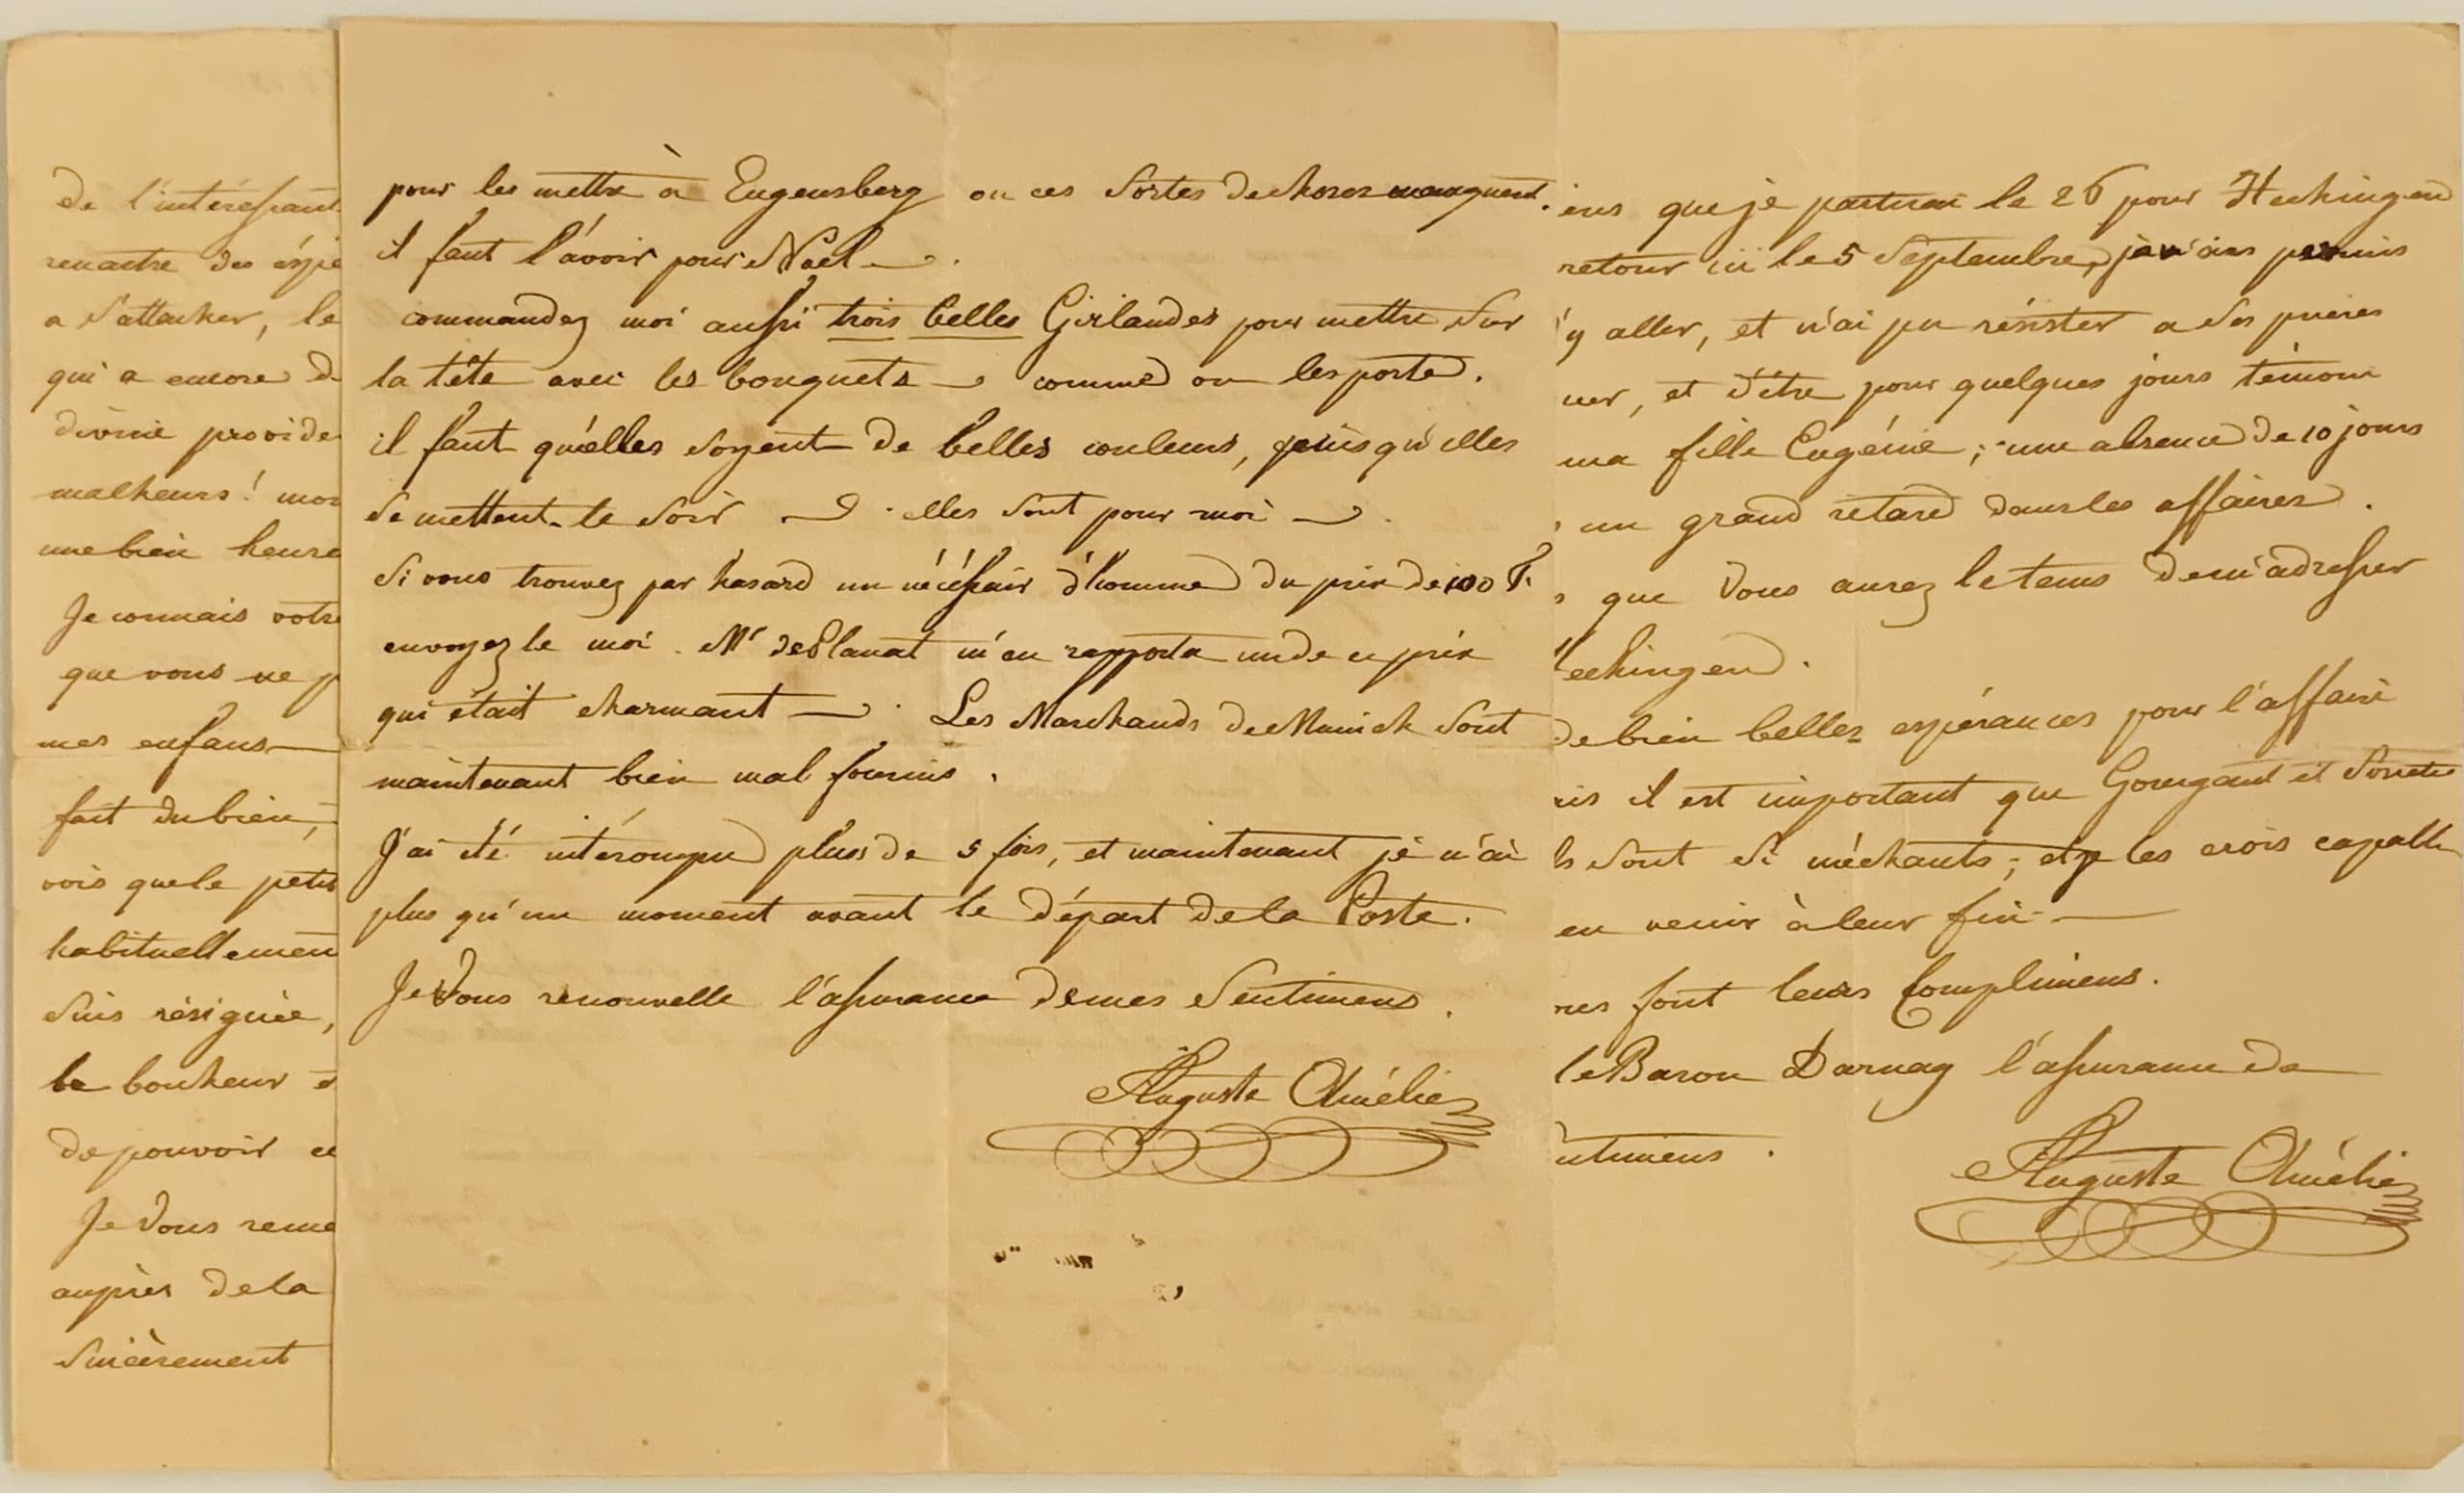 de l'intéressant
renaitre des éspé
a s'attacher, le
qui a encore d
divine provide
malheurs! mon
une bien heure
Je connais votre
que vous ne p
mes enfans —
fait du bien,
vois que le petit
habituellement
suis résignée,
le bonheur d
de pouvoir e
Je Vous reme
auprès de la
sincèrement
pour les mettre à Eugensberg ou ces sortes de choses manquent.
il faut l'avoir pour Noël —.
commandez moi aussi trois belles Girlandes pour mettre sur
la tête avec les bouquets — comme on les porte.
il faut qu'elles soyent de belles couleurs, puisqu'elles
se mettent le soir — . elles sont pour moi — .
Si vous trouvez par hasard un nécéssair d'homme du prix de 100 F.
envoyez le moi. Mr de Planat m'en rapporta un de ce prix
qui était charmant — . Les Marchands de Munich sont
maintenant bien mal fournis.
J'ai été intérompue plus de 5 fois, et maintenant je n'ai
plus qu'un moment avant le départ de la Poste.
Je Vous renouvelle l'assurance de mes Sentimens.
Auguste Amélie
ens que je partirai le 26 pour Hechingen
retour ici le 5 Septembre, permis
'y aller, et n'ai pu résister a ses prières
uer, et d'être pour quelques jours témoin
ma fille Eugénie; une absence de 10 jours
un grand retard dans les affaires.
s que Vous aurez le tems de m'adresser
Hechingen.
de bien belles espérances pour l'affaire
ris il est important que
ls sont si méchants; et je les crois capable
en venir à leur fin —
res font leurs Complimens.
le Baron Darnay l'assurance de
ntimens.
Auguste Amélie